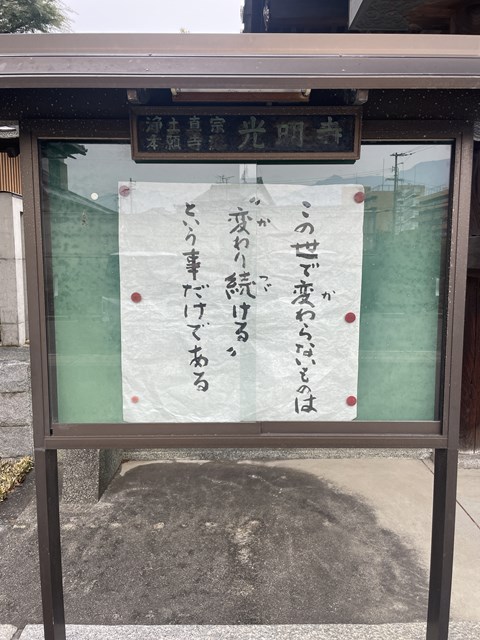 浄土真宗
本願寺派
光明寺
この世で変わらないものは
か
“変わり続ける”
か
つづ
という事だけである